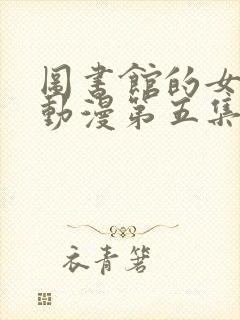 圖書館的女
動漫第五集
衣青箬